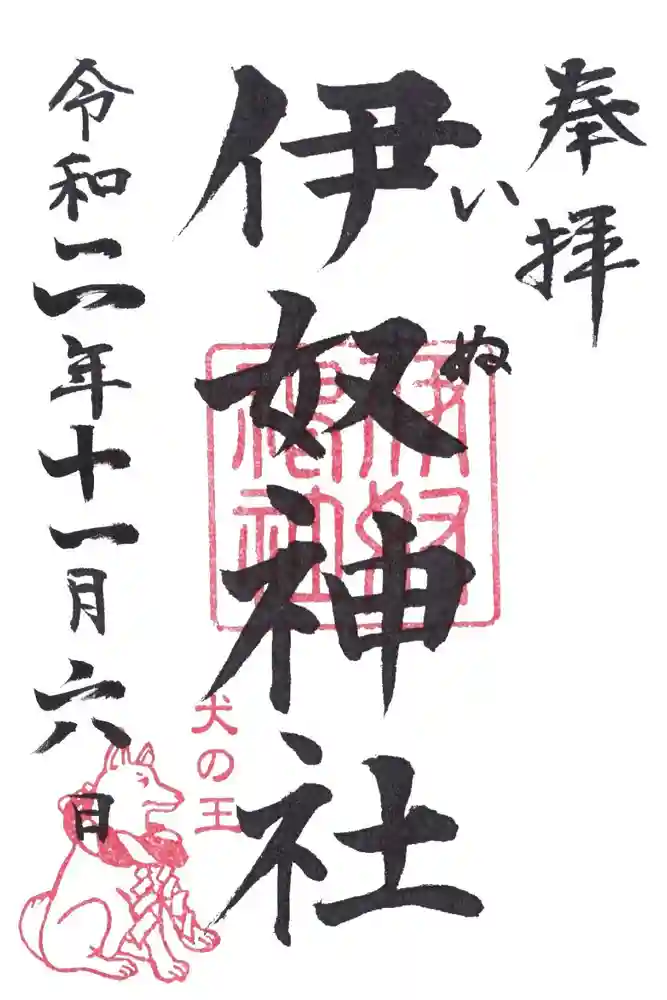 奉拝
伊奴神社
いぬ
犬の王
令和二年十一月六日